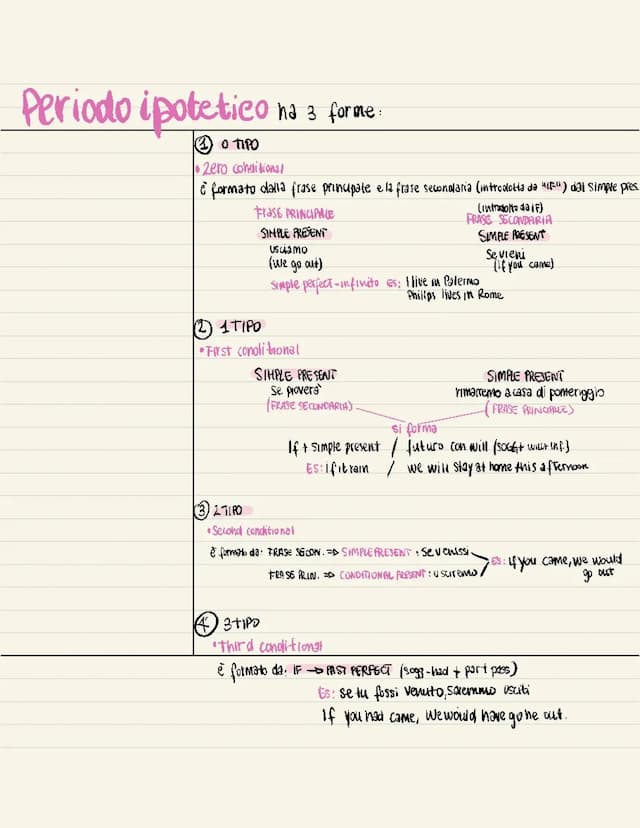 Periodo ipotetico ha 3 forme:
1 0 TIPO
• Zero conditional
è formato dalla frase principale e la frase secondaria (introdotta da "IF") dal simple pres
FRASE PRINCIPALE
(introdotta da IF)
FRASE SECONDARIA
SIMPLE PRESENT
SIMPLE PRESENT
usciamo
(we go out)
Se vieni
(if you came)
Simple perfect-infinito es: I live in Palermo
Philips lives in Rome
2 1 TIPO
• First conditional
SIMPLE PRESENT
SIMPLE PRESENT
Se pioverà
rimarremo a casa di pomeriggio
(FRASE SECONDARIA)
(FRASE PRINCIPALE)
si forma
If + simple present / futuro con will (sogg+ will+ inf.)
ES: If it rain / we will stay at home this afternoon
3 2 TIPO
• Second conditional
è formato da: FRASE SECON. => SIMPLE PRESENT : se venissi
ES: if you came, we would
go out
FRASE PRIN. => CONDITIONAL PRESENT : usciremo
4 3 TIPO
• Third conditional
è formato da: IF → PAST PERFECT (sogg-had + part pass)
Es: se tu fossi venuto, saremmo usciti
If you had came, we would have gone out.